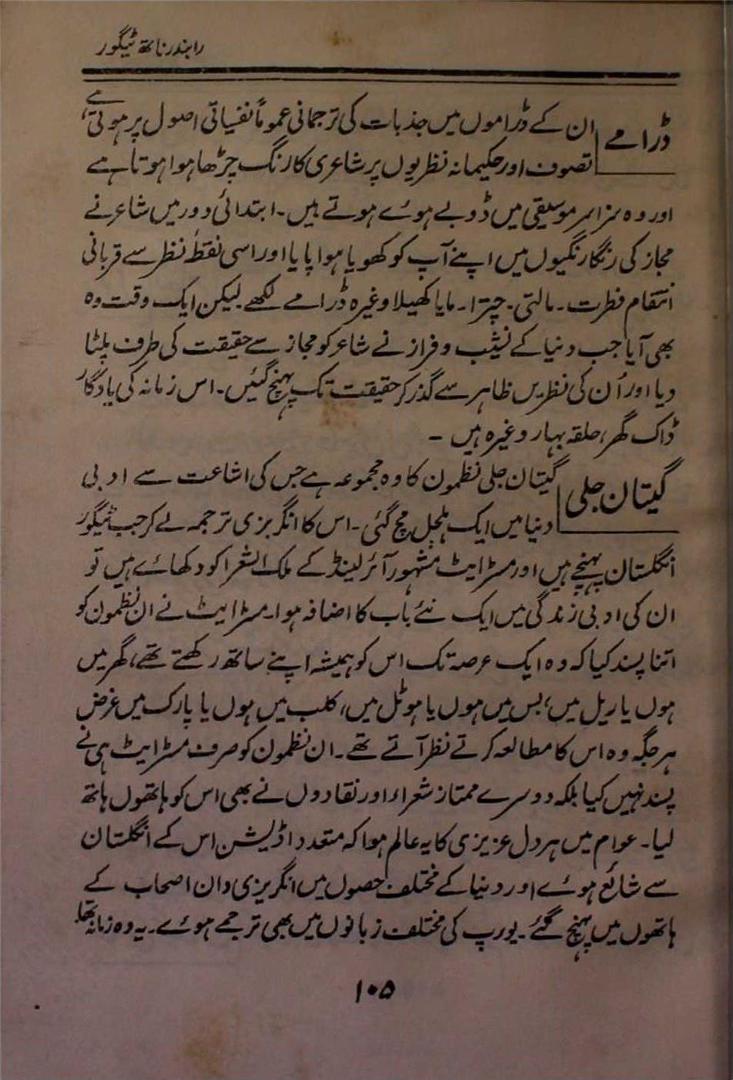 رابندر ناتھ ٹیگور
ڈرامے ان کے ڈراموں میں جذبات کی ترجمانی عموماً نفسیاتی اصول پر ہوتی ہے،
تصوف اور حکیمانہ نظریوں پر شاعری کا رنگ چڑھا ہوا ہوتا ہے
اور وہ سراسر موسیقی میں ڈوبے ہوئے ہوتے ہیں۔ ابتدائی دور میں شاعر نے
مجاز کی رنگا رنگیوں میں اپنے آپ کو کھویا ہوا پایا اور اسی نقطۂ نظر سے قربانی
انتقام فطرت۔ مالتی۔ چترا۔ مایا کھیلا وغیرہ ڈرامے لکھے۔ لیکن ایک وقت وہ
بھی آیا جب دنیا کے نشیب و فراز نے شاعر کو مجاز سے حقیقت کی طرف پلٹا
دیا اور اُن کی نظریں ظاہر سے گذر کر حقیقت تک پہنچ گئیں۔ اس زمانہ کی یادگار
ڈاک گھر، حلقہ بہار وغیرہ ہیں ۔
گیتان جلی گیتان جلی نظمون کا وہ مجموعہ ہے جس کی اشاعت سے ادبی
دنیا میں ایک ہلچل مچ گئی۔ اس کا انگریزی ترجمہ لے کر جب ٹیگور
انگلستان پہنچے ہیں اور مسٹر ایٹ مشہور آئر لینڈ کے ملک الشعرا کو دکھائے ہیں تو
ان کی ادبی زندگی میں ایک نئے باب کا اضافہ ہوا۔ مسٹر ایٹ نے ان نظمون کو
اتنا پسند کیا کہ وہ ایک عرصہ تک اس کو ہمیشہ اپنے ساتھ رکھتے تھے، گھر میں
ہوں یا ریل میں، بس میں ہوں یا ہوٹل میں، کلب میں ہوں یا پارک میں غرض
ہر جگہ وہ اس کا مطالعہ کرتے نظر آتے تھے۔ ان نظمون کو صرف مسٹر ایٹ ہی نے
پسند نہیں کیا بلکہ دوسرے ممتاز شعراء اور نقادوں نے بھی اس کو ہاتھوں ہاتھ
لیا۔ عوام میں ہر دل عزیزی کا یہ عالم ہوا کہ متعدد اڈیشن اس کے انگلستان
سے شائع ہوئے اور دنیا کے مختلف حصوں میں انگریزی دان اصحاب کے
ہاتھوں میں پہنچ گئے۔ یورپ کی مختلف زبانوں میں بھی ترجمے ہوئے۔ یہ وہ زمانہ تھا۔
۱۰۵